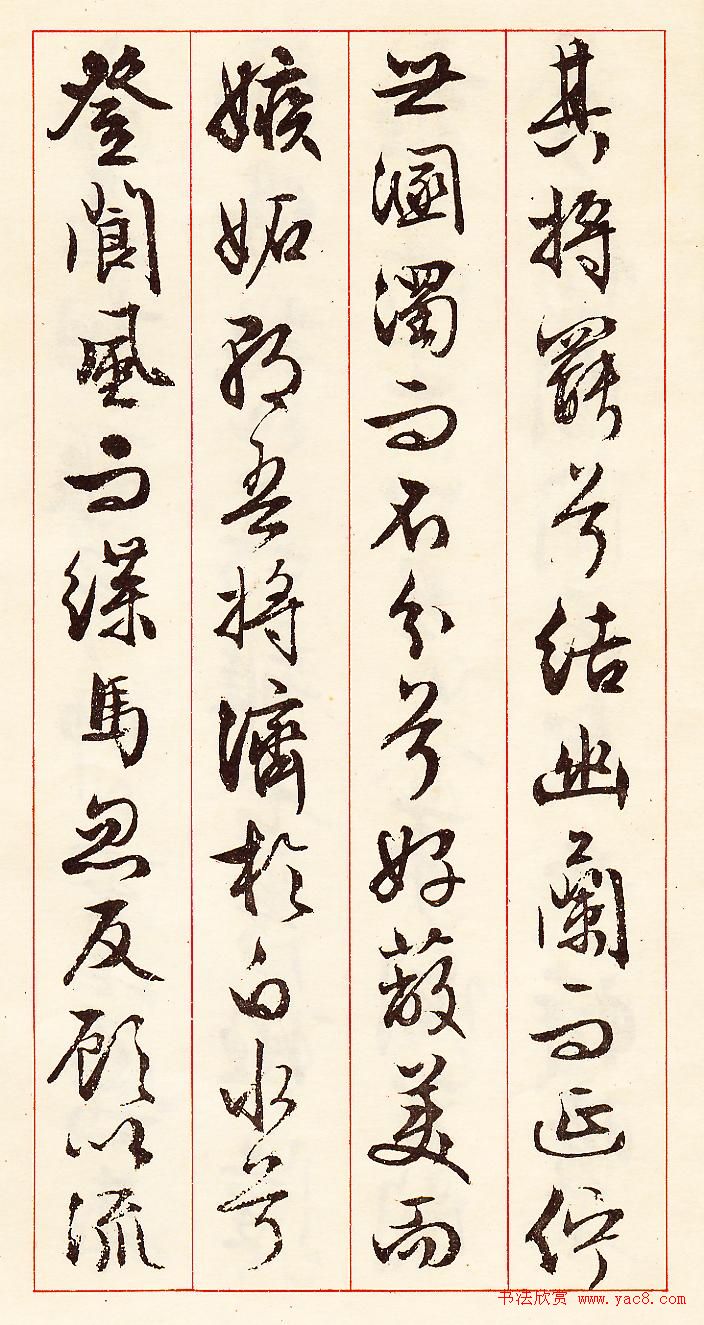 其將罷兮結幽蘭而延佇
世溷濁而不分兮好蔽美而
嫉妬朝吾將濟於白水兮
登閬風而緤馬忽反顧以流
书法欣赏 www.yac8.com